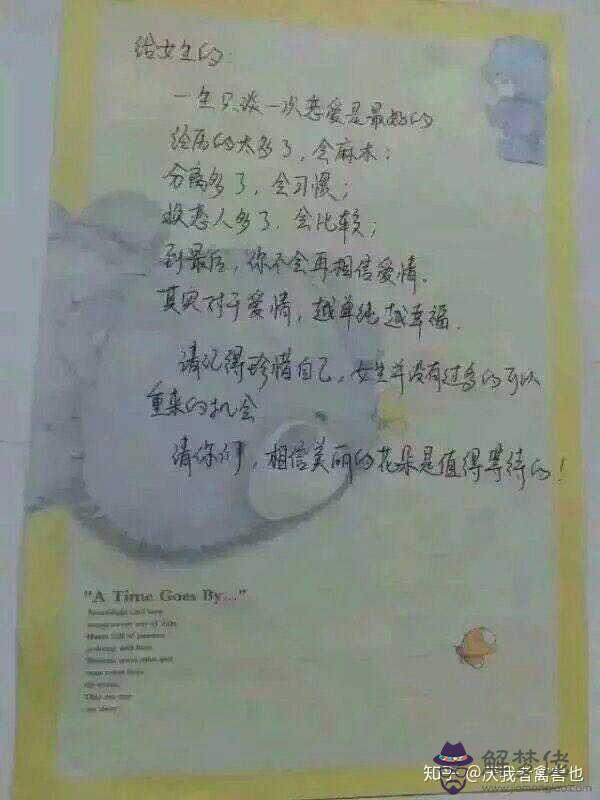 给女生的:
一生只谈一次恋爱是最好的
经历的太多了,会麻木;
分离多了,会习惯;
换恋人多了,会比较;
到最后,你不会再相信爱情.
其实对于爱情,越单纯越幸福.
请记得珍惜自己,女生并没有过多的可以
重来的机会
请你们,相信美丽的花朵是值得等待的!
"A Time Goes By..."
知乎
解梦佬
www.jiemenglao.com